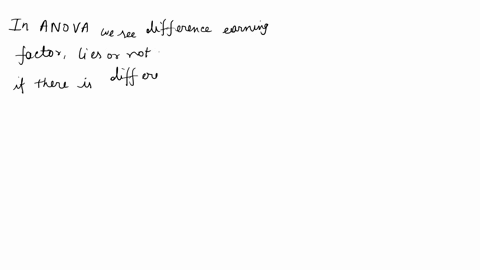 In ANOVA we see difference earning
factor, lies or not
if there is differe